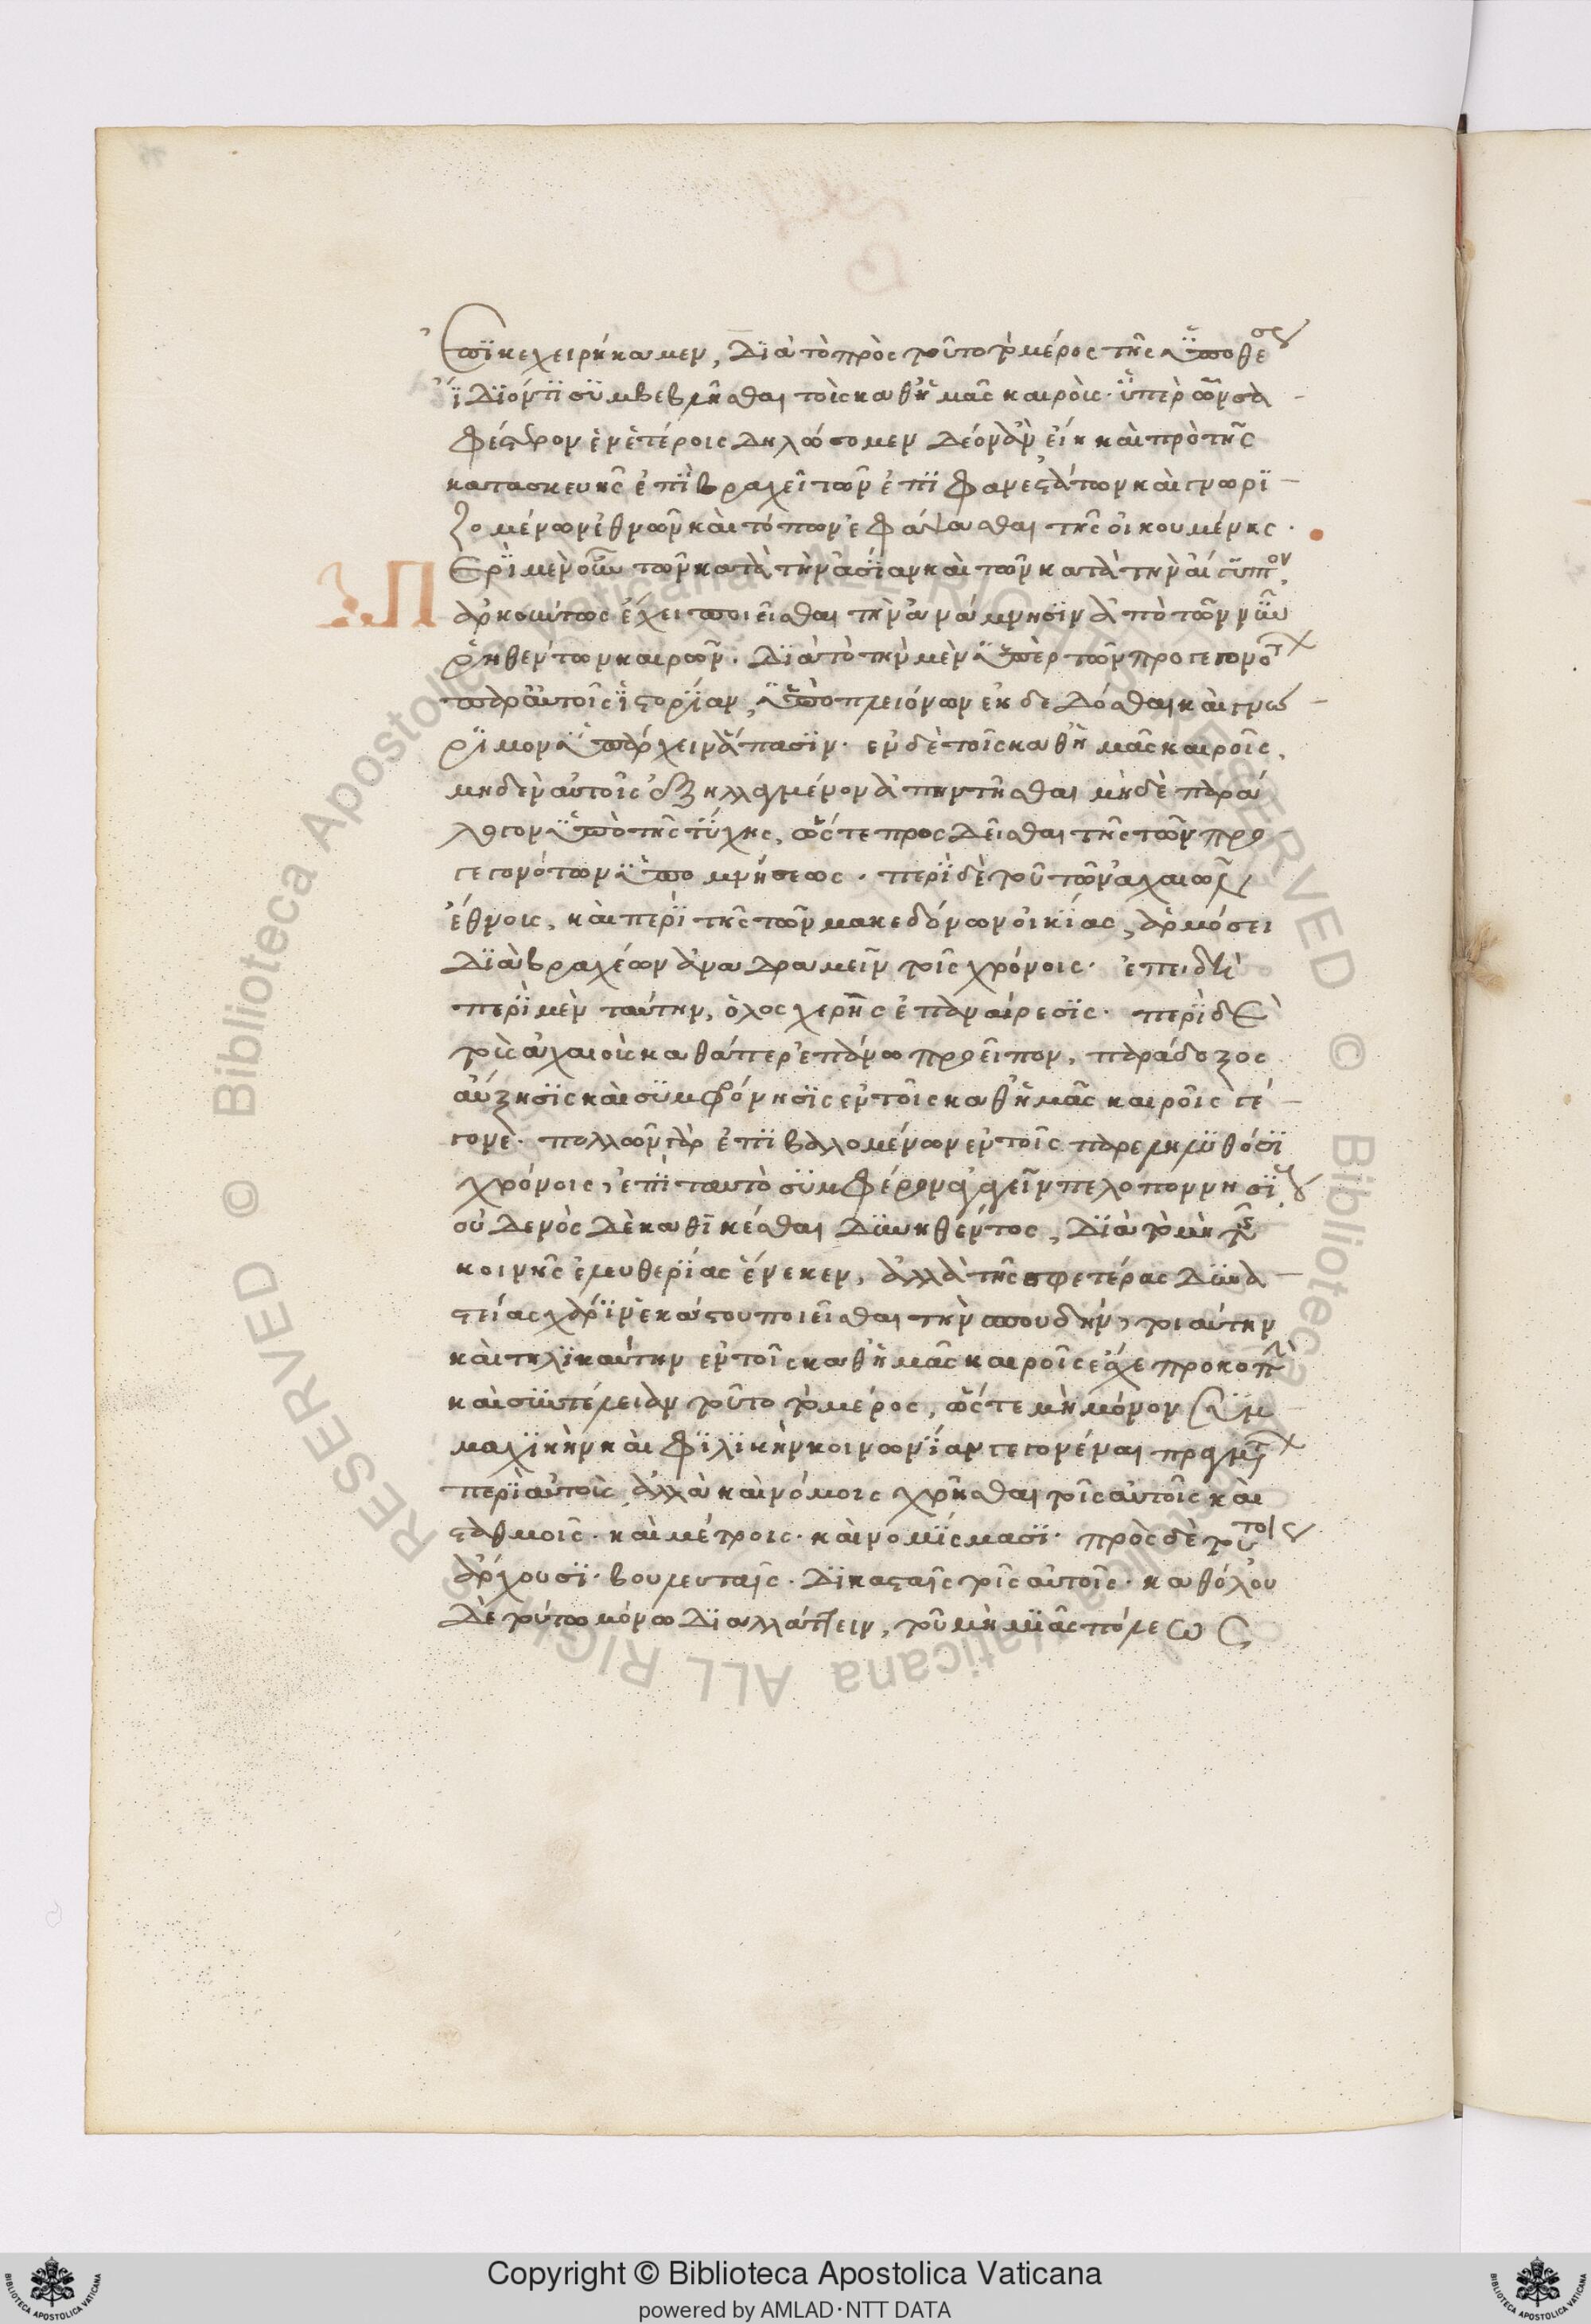 Ἐπικεχειρήκαμεν, διὰ τὸ πρὸς τοῦτο τὸ μέρος τῆς ὑποθέσεως
ἴδιόν τι συμβεβῆσθαι τοῖς καθ' ἡμᾶς καιροῖς· ὑπὲρ ὧν σα
φέστερον ἐν ἑτέροις δηλώσομεν δέον δ' ἂν εἴη καὶ πρὸ τῆς
κατασκευῆς ἐπὶ βραχεῖ τῶν ἐπιφανεστάτων καὶ γνωρι
ζομένων ἐθνῶν καὶ τόπων ἐφάψασθαι τῆς οἰκουμένης.
Περὶ μὲν οὖν τῶν κατὰ τὴν ἀσίαν καὶ τῶν κατὰ τὴν αἴγυπτον,
ἀρκούντως ἔχει ποιεῖσθαι τὴν ἀνάμνησιν ἀπὸ τῶν νῦν
ῥηθέντων καιρῶν. διὰ τὸ τὴν μὲν ὑπὲρ τῶν προγεγονότων
παρ' αὐτοῖς ἱστορίαν, ὑπὸ πλειόνων ἐκδεδόσθαι καὶ γνώ
ριμον ὑπάρχειν ἅπασιν· ἐν δὲ τοῖς καθ' ἡμᾶς καιροῖς,
μηδὲν αὐτοῖς ἐξηλλαγμένον ἀπηντῆσθαι μηδὲ παρά
λογον ὑπὸ τῆς τύχης, ὥστε προσδεῖσθαι τῆς τῶν προ
γεγονότων ὑπομνήσεως. περὶ δὲ τοῦ τῶν ἀχαιῶν
ἔθνους, καὶ περὶ τῆς τῶν μακεδόνων οἰκίας, ἁρμόσει
διὰ βραχέων ἀναδραμεῖν τοῖς χρόνοις· ἐπειδὴ
περὶ μὲν ταύτην, ὁλοσχερὴς ἐπαναίρεσις· περὶ δὲ
τοὺς ἀχαιοὺς καθάπερ ἐπάνω προεῖπον, παράδοξος
αὔξησις καὶ συμφόνησις ἐν τοῖς καθ' ἡμᾶς καιροῖς γέ
γονε· πολλῶν γὰρ ἐπιβαλλομένων ἐν τοῖς παρεληλυθόσι
χρόνοις, ἐπὶ ταυτὸ συμφέρον ἀγαγεῖν πελοποννησίους
οὐδενὸς δὲ καθικέσθαι δυνηθέντος, διὰ τὸ μὴ τῆς
κοινῆς ἐλευθερίας ἕνεκεν, ἀλλὰ τῆς σφετέρας δυνα
στείας χάριν ἑκάστου ποιεῖσθαι τὴν σπουδὴν, τοιαύτην
καὶ τηλικαύτην ἐν τοῖς καθ' ἡμᾶς καιροῖς ἔσχε προκοπὴν
καὶ συντέλειαν τοῦτο τὸ μέρος, ὥστε μὴ μόνον συμ
μαχικὴν καὶ φιλικὴν κοινωνίαν γεγονέναι πραγμάτων
περὶ αὐτοὺς ἀλλὰ καὶ νόμοις χρῆσθαι τοῖς αὐτοῖς καὶ
σταθμοῖς· καὶ μέτροις· καὶ νομίσμασι· πρὸς δὲ τούτοις
ἄρχουσι· βουλευταῖς· δικασταῖς τοῖς αὐτοῖς· καθόλου
δὲ τούτω μόνω διαλλάττειν, τοῦ μὴ μιᾶς πόλεως
Copyright © Biblioteca Apostolica Vaticana
powered by AMLAD·NTT DATA